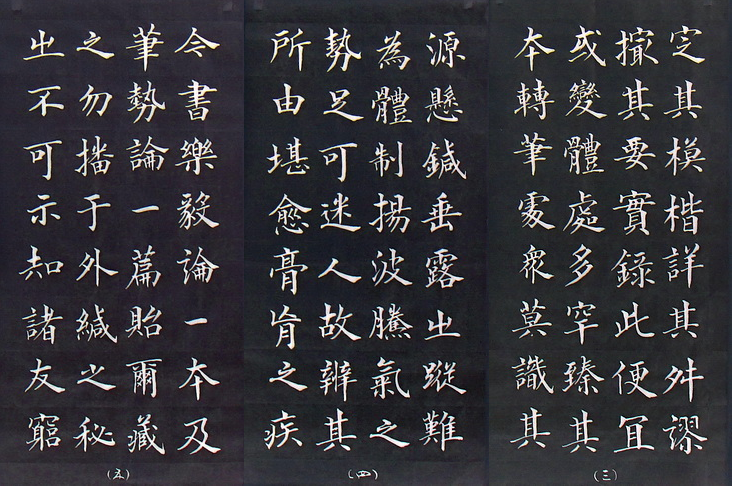 定其模楷詳其舛謬
撮其要實錄此便宜
或變體處多罕臻其
本轉筆處眾莫識其
(三)
源懸鍼垂露之蹤難
為體制揚波騰氣之
勢足可迷人故辨其
所由堪愈膏肓之疾
(四)
今書樂毅論一本及
筆勢論一篇貽爾藏
之勿播于外緘之秘
之不可示知諸友窮
(五)